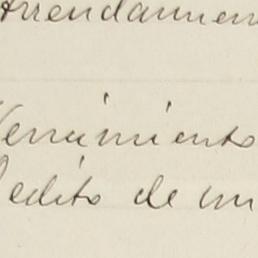 Arrendamien
Vencimiento
edito de un